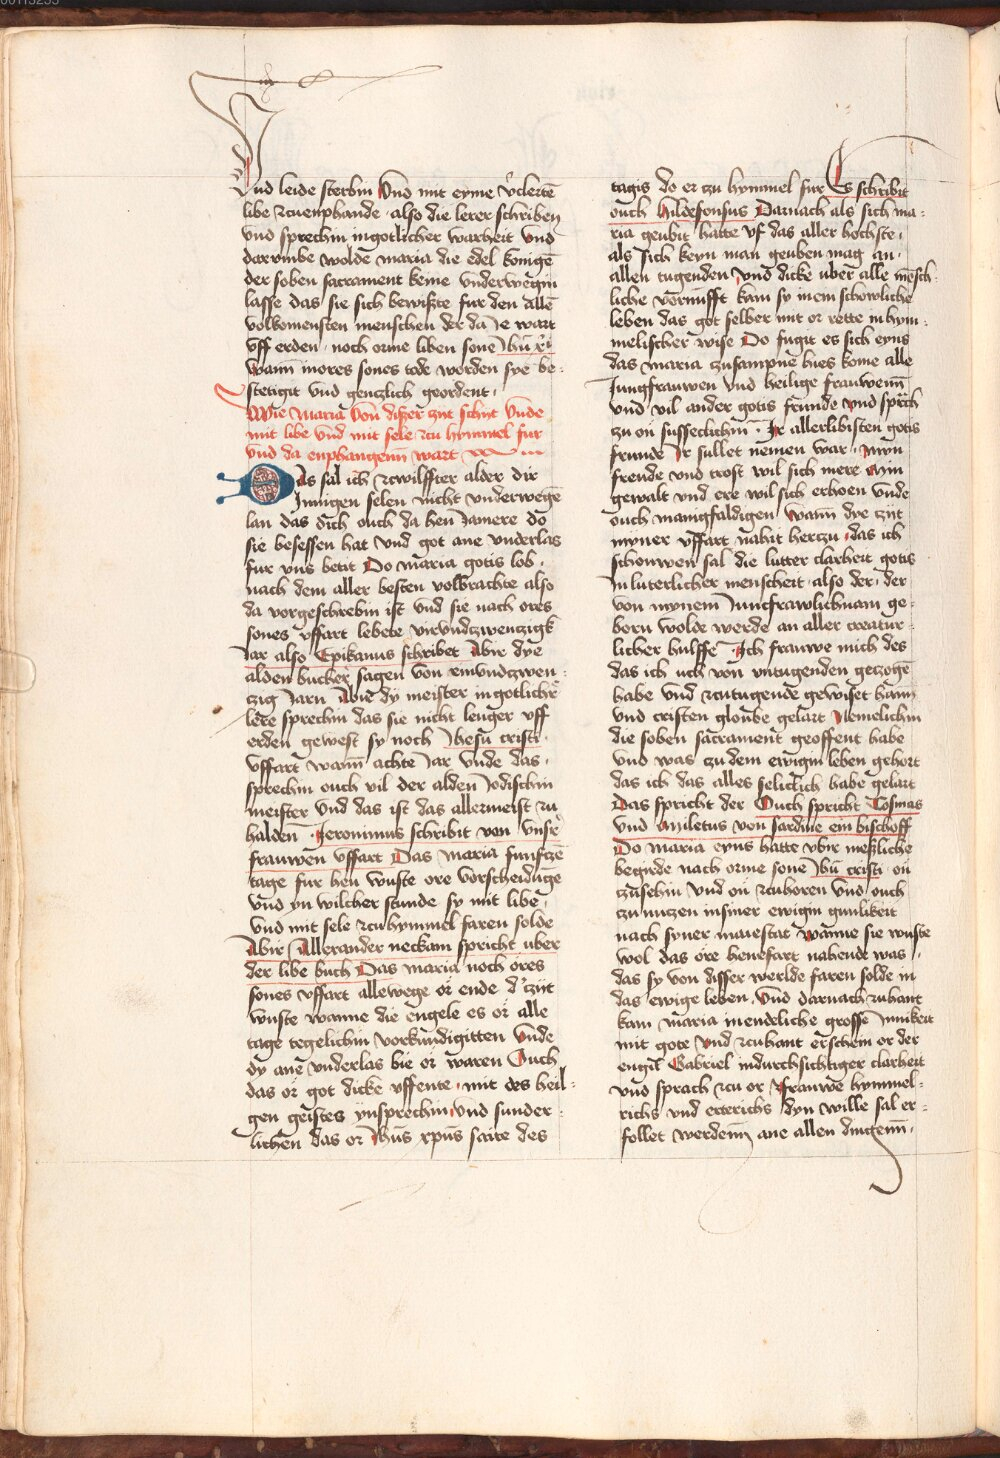 00115255
Vnd leide sterbin Vnd mit eyme v̓clertē
libe zcuenphande · also die lerer schriben
vnd sprechin ingotlicher warheit Vnd
darvmbe wolde maria die edel konigē
der soben sacrament keine vnderwegin
lasse das sie sich bewißte fur den allē
volkomensten menschen der da ie wart
vff erden · noch orme liben sone Jhū xp̄i
Wann inores sones tode worden sye be-
stetigit vnd genczlich geordent ·
Wie maria von disser zyt schit vnde
mit libe vnd mit sele zcu hymmel fur
vnd da enphangenn wart
Das sal ich zcwilffter alder dir
Jnnigen selen nicht vnderwegē
lan das dich ouch da hen Jamere do
sie besessen hat vnd got ane vnderlas
fur vns betit Do maria gotis lob ·
nach dem aller besten volbrachte also
da vorgeschrebin ist vnd sie nach ores
sones vffart lebete virvndzwenzigk
Jar also Epikanus schribet Abir dye
alden bucher sagen von einvndzwen-
zig Jarn Abir dy meister ingotlichr̄
lere sprechin das sie nicht lenger vff
erden gewest sy noch Jhesu cristi ·
vffart wann achte Jar vnde das ·
sprechin ouch vil der alden Jodischin
meister vnd das ist das allermeist zu
halden · Jeronimus schribit von vnsr̄
frauwen vffart Das maria funfczē
tage fur hen wuste ore vorscheidūge
vnd yn wilcher stunde sy mit libe ·
vnd mit sele zcuhymmel faren solde
Abir Allexander neckam spricht vber
der libe buch Das maria noch ores
sones vffart allewege or ende d̓ zyt
wuste wanne die engele es or alle
tage tegelichin vorkundigitten vnde
dy ane vnderlas bie or waren Ouch
das or got dicke vffente · mit des heil-
gen geistes ynsprechin Vnd sunder-
lichen das or Jhūs xpūs saite des
tagis do er zu hymmel fur Es schribit
ouch hildefonsus Darnach als sich ma-
ria geubit hatte vf das aller hochste ·
als sich keyn man geuben mag an ·
allen tugenden vnd dicke vber alle mēsch-
liche vernufft kam sy in em schowliche
leben das got selber mit or rette in hym-
melischer wise Do fugit es sich eyns
das maria zusampne hies kome alle
Jungfrauwen vnd heilige frauwenn
vnd vil ander gotis frunde vnd sprach
zu on susseclichin · Jr allerlibisten gotis
frunde Jr sullet nemen war · Myn
freude vnd trost wil sich mere Myn
gewalt vnd ere wil sich erhoen vnde
ouch manigfaldigen Wann dye zyt
myner vffart nahit herczu · das ich
schouwen sal die lutter clarheit gotis
Jn luterlicher menscheit · also der · der
von mynem Juncfrawlichnam ge-
born wolde werde an aller creatur-
licher hulffe · Jch frauwe mich des
das ich uch von vntugenden geczogē
habe vnd zcutugende gewiset hann
vnd cristen gloube gelart Nemelichin
die soben sacrament geoffent habe
vnd was zu dem ewigin leben gehort
das ich das alles seliclich habe gelart
Das spricht der Ouch spricht Cosmas
vnd Miletus von sardine ein bischoff
Do maria eyns hatte vbir meßliche
begirde nach orme sone Jhū cristi · on
zusehin vnd on zcuhoren vnd ouch
zu nuzen insiner ewigin gunlikeit
nach syner maiestat Wanne sie wuste
wol das ore henefart nahende was ·
das sy von disser werlde faren solde in
das ewige leben · Vnd darnach zuhant
kam maria in endeliche grosse Jnnikeit
mit gote vnd zcuhant erschein or der
engil Gabriel indurchsichtiger clarheit
vnd sprach zcu or Frauwe hymmel-
richs vnd ertrichs dyn wille sal er-
follet werdenn ane allen dingenn ·